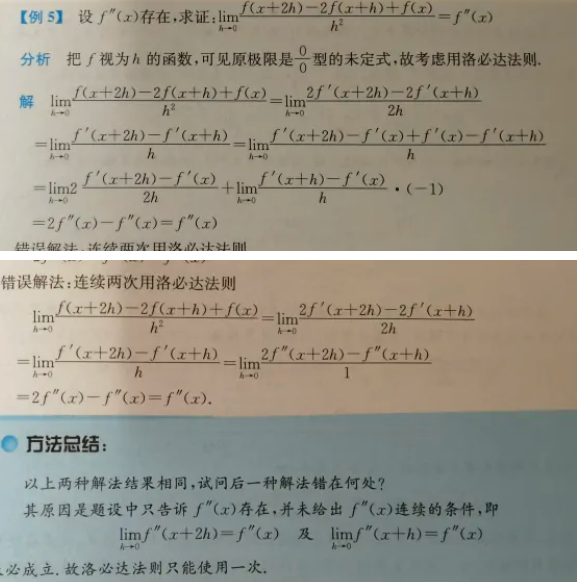 【例5】 设 f″(x)存在,求证:lim_{h→0} \frac{f(x+2h)−2f(x+h)+f(x)}{h²}=f″(x)
分析 把 f 视为h 的函数,可见原极限是\frac{0}{0}型的未定式,故考虑用洛必达法则.
解 lim_{h→0} \frac{f(x+2h)−2f(x+h)+f(x)}{h²}=lim_{h→0} \frac{2f′(x+2h)−2f′(x+h)}{2h}
=lim_{h→0} \frac{f′(x+2h)−f′(x+h)}{h}=lim_{h→0} \frac{f′(x+2h)−f′(x)+f′(x)−f′(x+h)}{h}
=lim_{h→0} 2 \frac{f′(x+2h)−f′(x)}{2h}+lim_{h→0} \frac{f′(x+h)−f′(x)}{h}·(−1)
=2f″(x)−f″(x)=f″(x)
错误解法:连续两次用洛必达法则
错误解法:连续两次用洛必达法则
lim_{h→0} \frac{f(x+2h)−2f(x+h)+f(x)}{h²}=lim_{h→0} \frac{2f′(x+2h)−2f′(x+h)}{2h}
=lim_{h→0} \frac{f′(x+2h)−f′(x+h)}{h}=lim_{h→0} \frac{2f″(x+2h)−f″(x+h)}{1}
=2f″(x)−f″(x)=f″(x).
方法总结:
以上两种解法结果相同,试问后一种解法错在何处?
其原因是题设中只告诉 f″(x)存在,并未给出 f″(x)连续的条件,即
lim_{h→0} f″(x+2h)=f″(x) 及 lim_{h→0} f″(x+h)=f″(x)
必成立.故洛必达法则只能使用一次.